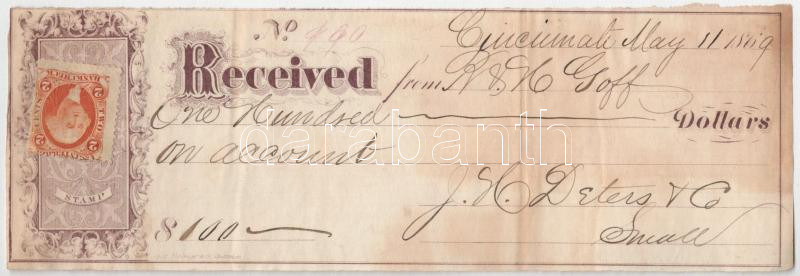 No 490
Cincinnati May 11 1869
Received from R & H Goff
One Hundred Dollars
on account
J. H. Deters & Co
Small
$ 100
STAMP
2 TWO CENTS 2
darabanth